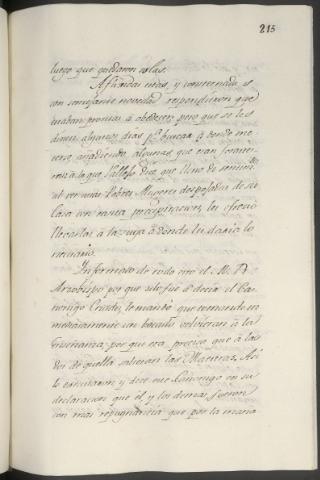 215
luego que quedaron solas.
Afligidas estas, y consternadas
con semejante novedad respondieron que
estaban prontas à obedecer; pero que se les
diesen algunos dias p.ª buscar à donde mo-
verse, añadiendo algunas que eran foraste-
ras à lo que Callejo dijo que lleno de sentim.to
al ver unas Pobres Mugeres despojadas de su
Casa con tanta precipitacion, les ofreció
llevarlas à la suya à donde les daria lo
necesario.
Informado de todo esto el M. R.
Arzobispo por que asi fue à decir el Ca-
nonigo Criado, le mandó que tomando
inmediatamente un bocado volvieran à la
Enseñanza, por que era preciso que à las
de aquella salieran las Maestras. Asi
lo executaron y dice ese Canonigo en su
declaracion que el, y los demas fueron
con mas repugnancia que por la mañana